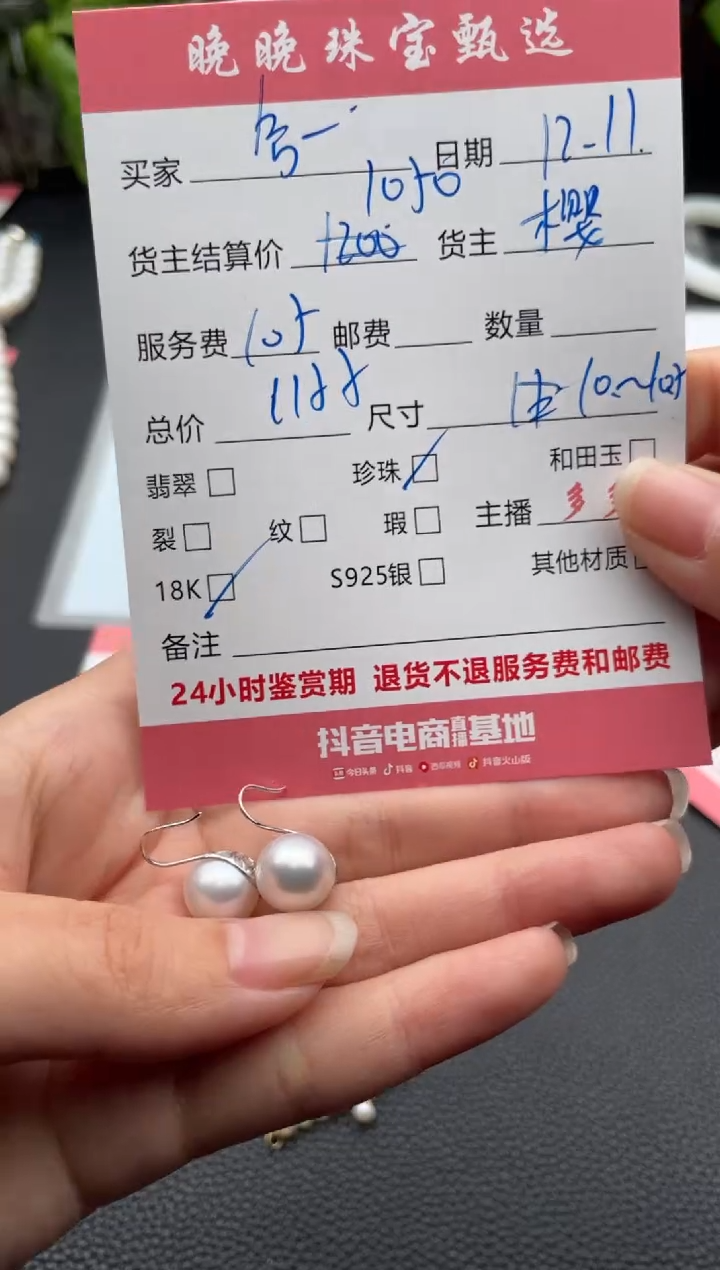 晚晚珠宝甄选
买家 日期 12-11.
1050
货主结算价 1200 货主 樱
服务费 105 邮费 数量
总价 1155 尺寸 10~10.5
翡翠 珍珠 和田玉
裂 纹 瑕 主播 多
18K S925银 其他材质
备注
24小时鉴赏期 退货不退服务费和邮费
抖音电商直播基地
今日头条 抖音 西瓜视频 抖音火山版